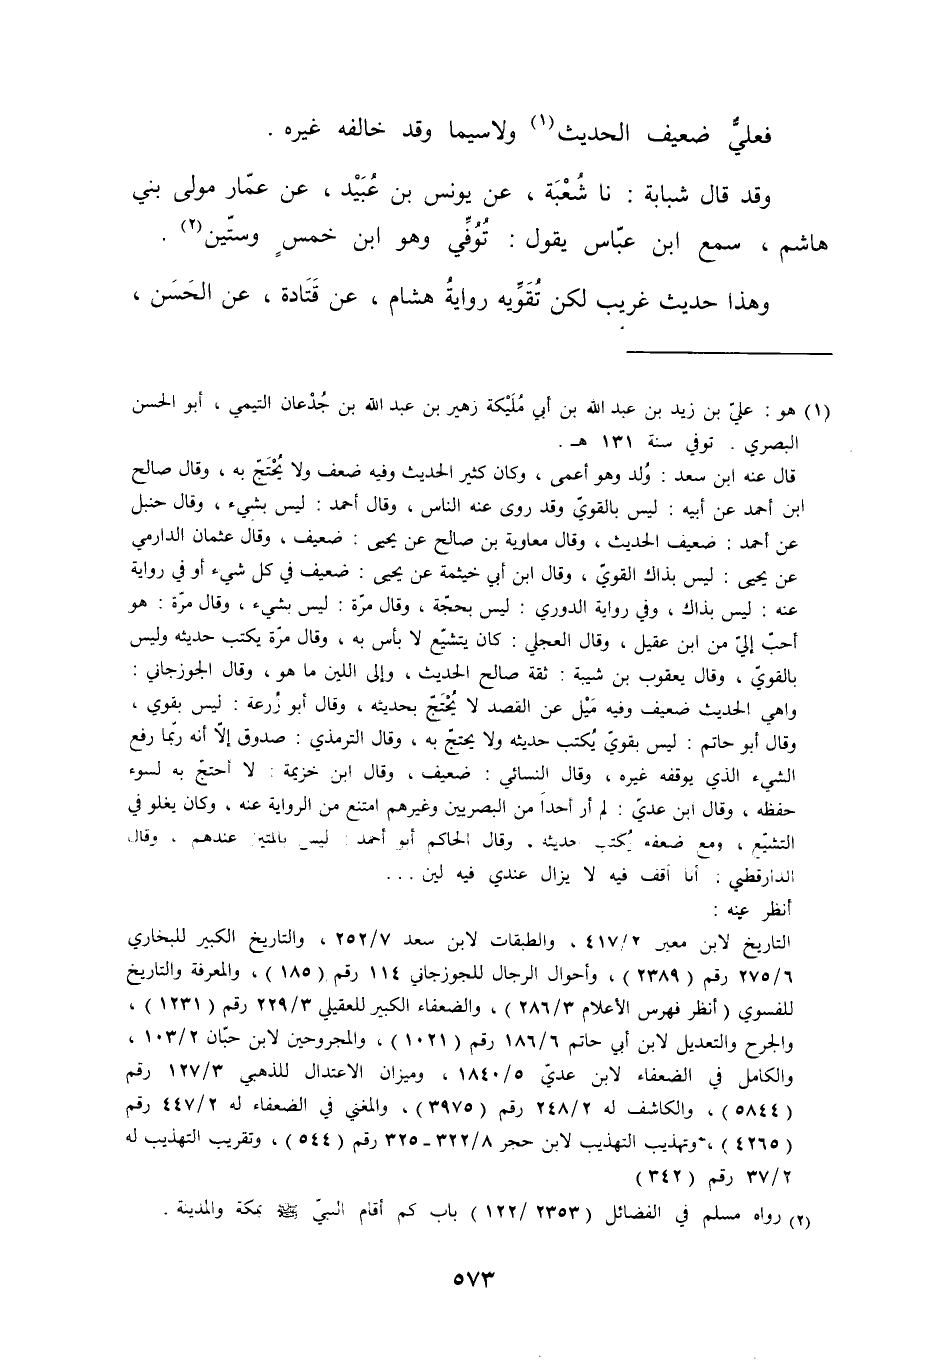 فعليٌّ ضعيف الحديث(١) ولاسيما وقد خالفه غيره .
وقد قال شبابة : نا شُعْبَة ، عن يونس بن عُبَيْد ، عن عمّار مولى بني
هاشم ، سمع ابن عبّاس يقول : تُوُفِّي وهو ابن خمسٍ وستّين(٢) .
وهذا حديث غريب لكن تُقَوِّيه روايةُ هشام ، عن قَتَادة ، عن الحَسَن ،
(١) هو : عليّ بن زيد بن عبد الله بن أبي مُلَيْكة زهير بن عبد الله بن جُدْعان التيمي ، أبو الحسن
البصري . توفي سنة ١٣١ هـ .
قال عنه ابن سعد : وُلد وهو أعمى ، وكان كثير الحديث وفيه ضعف ولا يُحْتَجّ به ، وقال صالح
ابن أحمد عن أبيه : ليس بالقويّ وقد روى عنه الناس ، وقال أحمد : ليس بشيء ، وقال حنبل
عن أحمد : ضعيف الحديث ، وقال معاوية بن صالح عن يحيى : ضعيف ، وقال عثمان الدارمي
عن يحيى : ليس بذاك القويّ ، وقال ابن أبي خيثمة عن يحيى : ضعيف في كل شيء أو في رواية
عنه : ليس بذاك ، وفي رواية الدوري : ليس بحجّة ، وقال مرّة : ليس بشيء ، وقال مرّة : هو
أحبّ إليّ من ابن عقيل ، وقال العجلي : كان يتشيّع لا بأس به ، وقال مرّة يكتب حديثه وليس
بالقويّ ، وقال يعقوب بن شيبة : ثقة صالح الحديث ، وإلى اللين ما هو ، وقال الجوزجاني :
واهي الحديث ضعيف وفيه مَيْل عن القصد لا يُحْتَجّ بحديثه ، وقال أبو زُرعة : ليس بقوي ،
وقال أبو حاتم : ليس بقويّ يُكتب حديثه ولا يحتجّ به ، وقال الترمذي : صدوق إلاّ أنه ربّما رفع
الشيء الذي يوقفه غيره ، وقال النسائي : ضعيف ، وقال ابن خزيمة : لا أحتجّ به لسوء
حفظه ، وقال ابن عديّ : لم أر أحداً من البصريين وغيرهم امتنع من الرواية عنه ، وكان يغلو في
التشيّع ، ومع ضعفه يُكتب حديثه . وقال الحاكم أبو أحمد : ليس بالمتين عندهم ، وقال
الدارقطني : أنا أقف فيه لا يزال عندي فيه لين ...
أنظر عنه :
التاريخ لابن معين ٤١٧/٢ ، والطبقات لابن سعد ٢٥٢/٧ ، والتاريخ الكبير للبخاري
٢٧٥/٦ رقم (٢٣٨٩) ، وأحوال الرجال للجوزجاني ١١٤ رقم (١٨٥) ، والمعرفة والتاريخ
للفسوي (أنظر فهرس الأعلام ٢٨٦/٣) ، والضعفاء الكبير للعقيلي ٢٢٩/٣ رقم (١٢٣١) ،
والجرح والتعديل لابن أبي حاتم ١٨٦/٦ رقم (١٠٢١) ، والمجروحين لابن حبّان ١٠٣/٢ ،
والكامل في الضعفاء لابن عديّ ١٨٤٠/٥ ، وميزان الاعتدال للذهبي ١٢٧/٣ رقم
(٥٨٤٤) ، والكاشف له ٢٤٨/٢ رقم (٣٩٧٥) ، والمغني في الضعفاء له ٤٤٧/٢ رقم
(٤٢٦٥) ، وتهذيب التهذيب لابن حجر ٣٢٢/٨ - ٣٢٥ رقم (٥٤٤) ، وتقريب التهذيب له
٣٧/٢ رقم (٣٤٢)
(٢) رواه مسلم في الفضائل (١٢٢/٢٣٥٣) باب كم أقام النبيّ ﷺ بمكة والمدينة .
٥٧٣